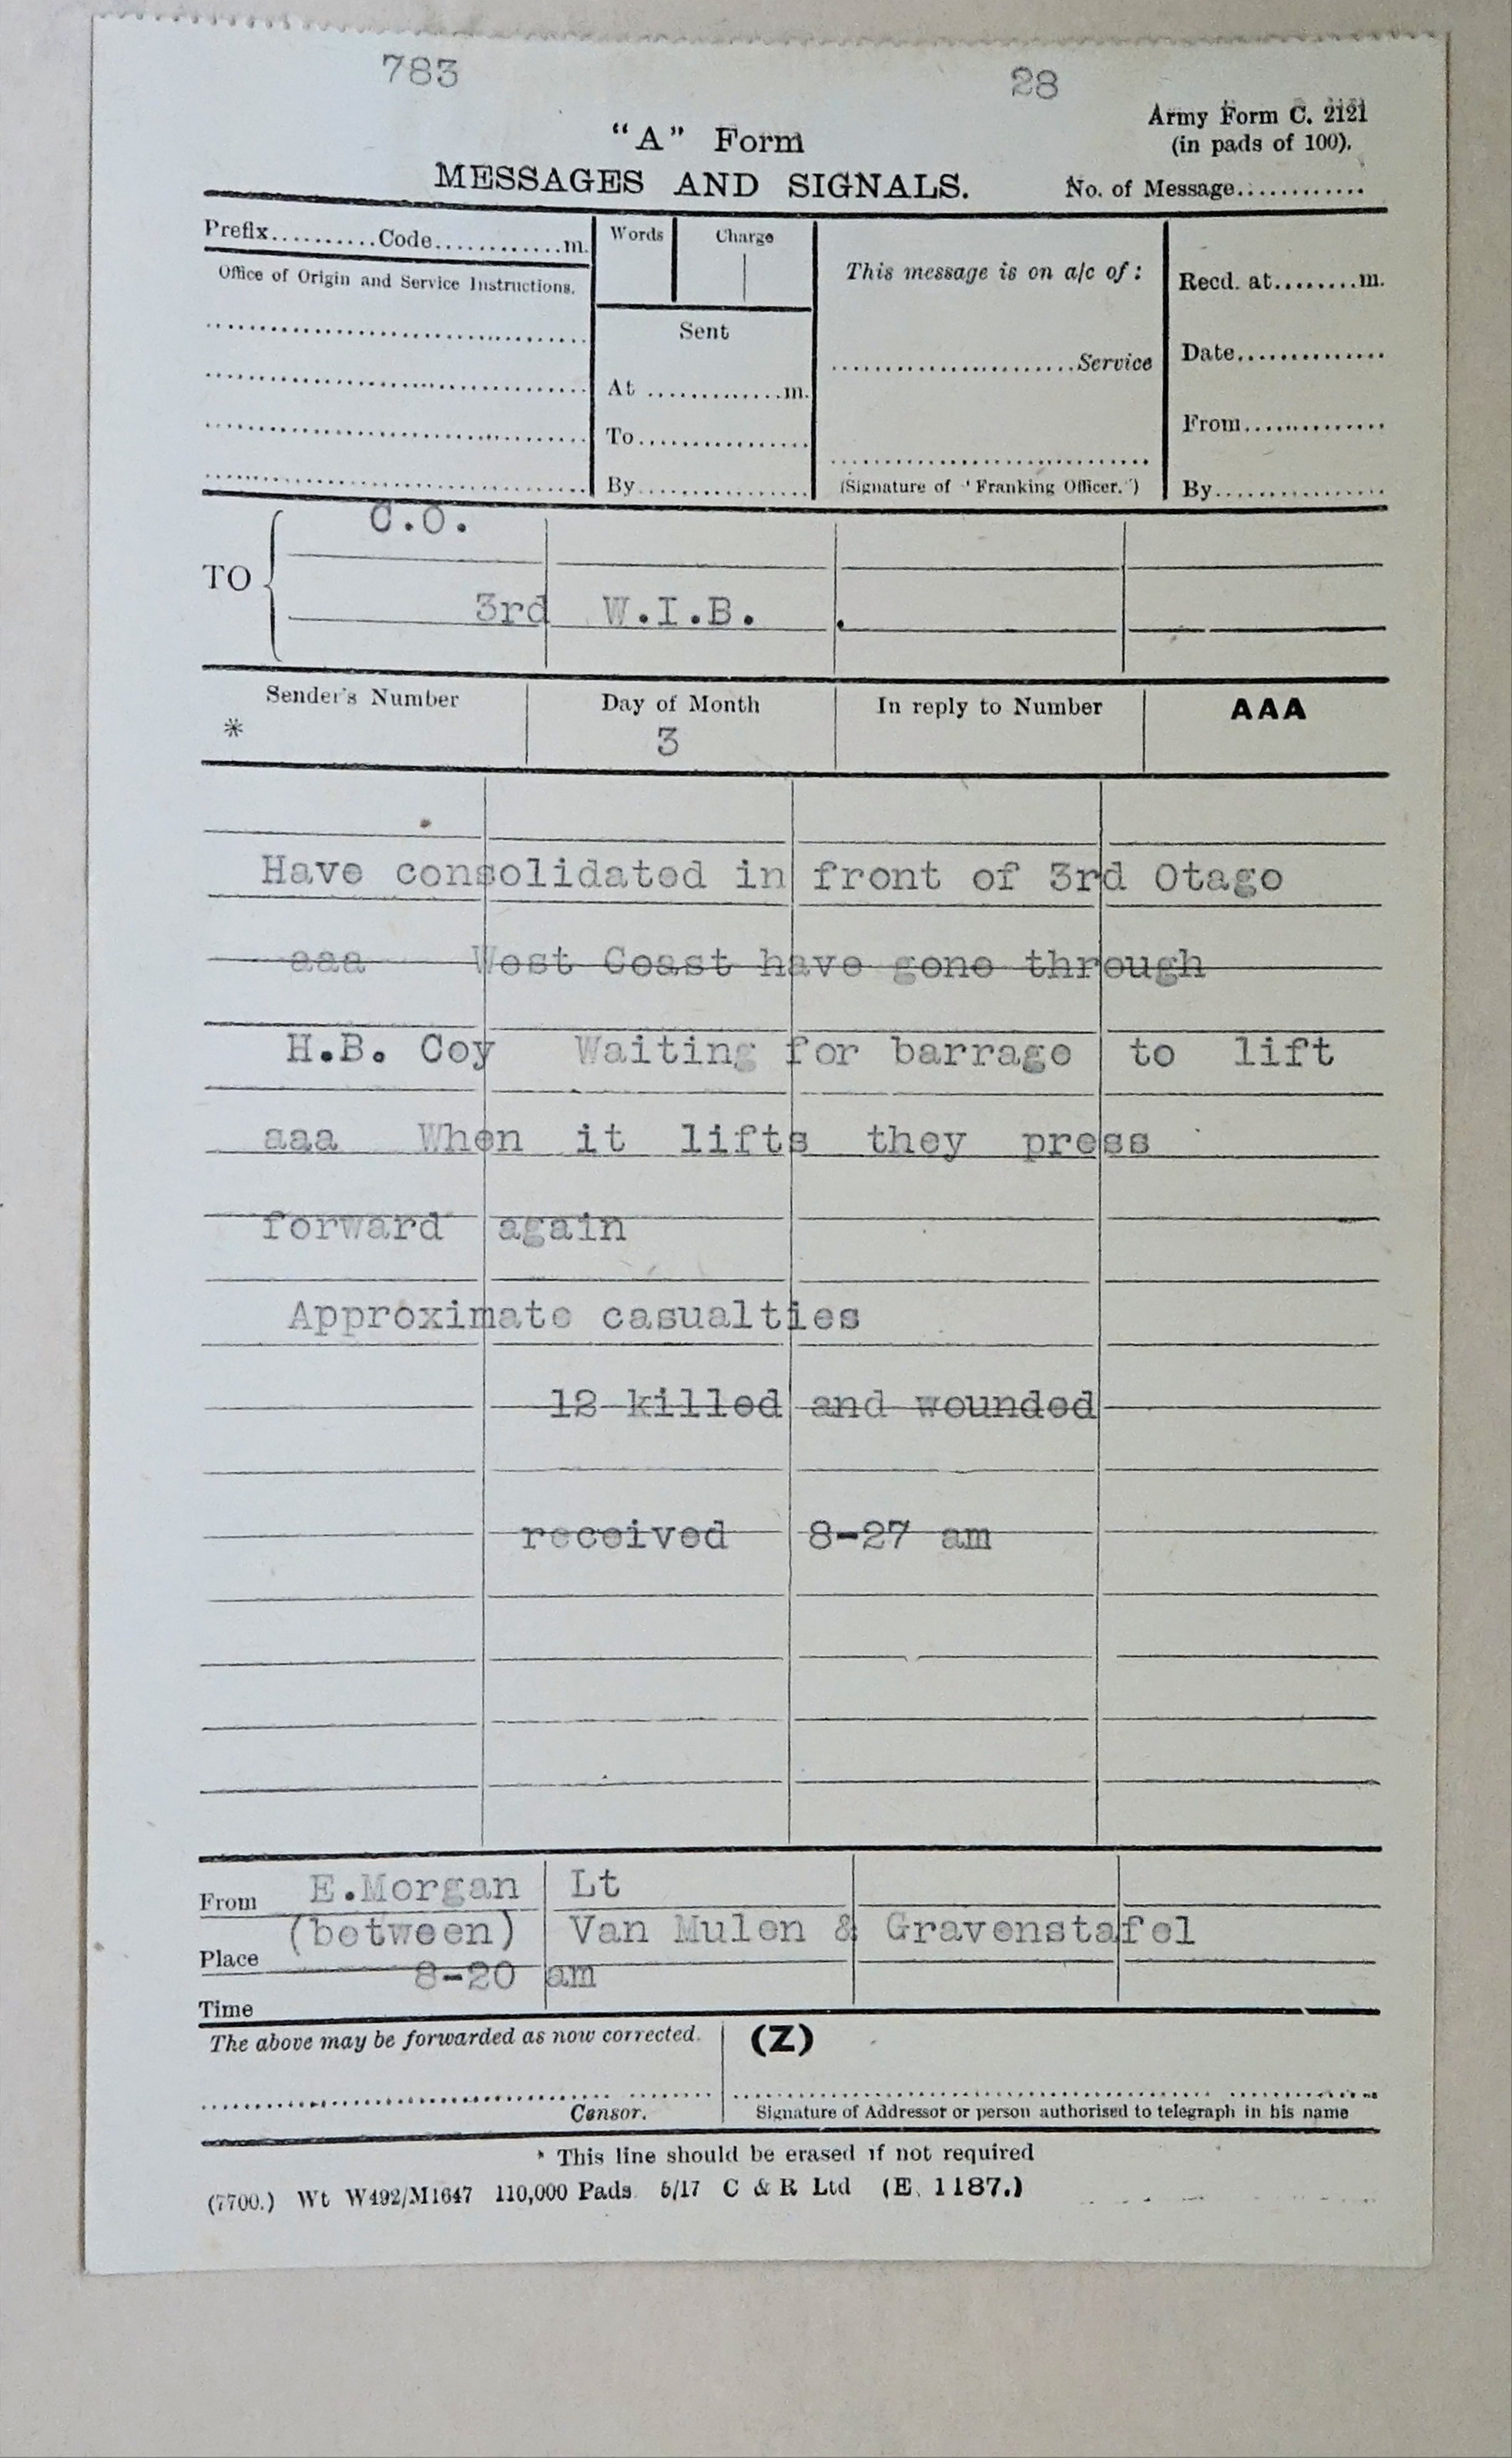 783 28
Army Form C. 2121
"A" Form
(in pads of 100).
MESSAGES AND SIGNALS.
No. of Message............
Prefix..........Code............m.
Words
Charge
This message is on a/c of:
Recd. at........m.
Office of Origin and Service Instructions.
Sent
Date..............
........................Service
At .............m.
From..............
To................
(Signature of "Franking Officer.")
By................
By................
C.O.
TO
3rd W.I.B. .
Sender's Number
Day of Month
In reply to Number
AAA
*
3
Have consolidated in front of 3rd Otago
aaa West Coast have gone through
H.B. Coy Waiting for barrage to lift
aaa When it lifts they press
forward again
Approximate casualties
12 killed and wounded
received 8-27 am
From E.Morgan Lt
(between) Van Mulen & Gravenstafel
Place
8-20 am
Time
The above may be forwarded as now corrected.
(Z)
Censor.
Signature of Addressor or person authorised to telegraph in his name
* This line should be erased if not required
(7700.) Wt W492/M1647 110,000 Pads 5/17 C & R Ltd (E. 1187.)